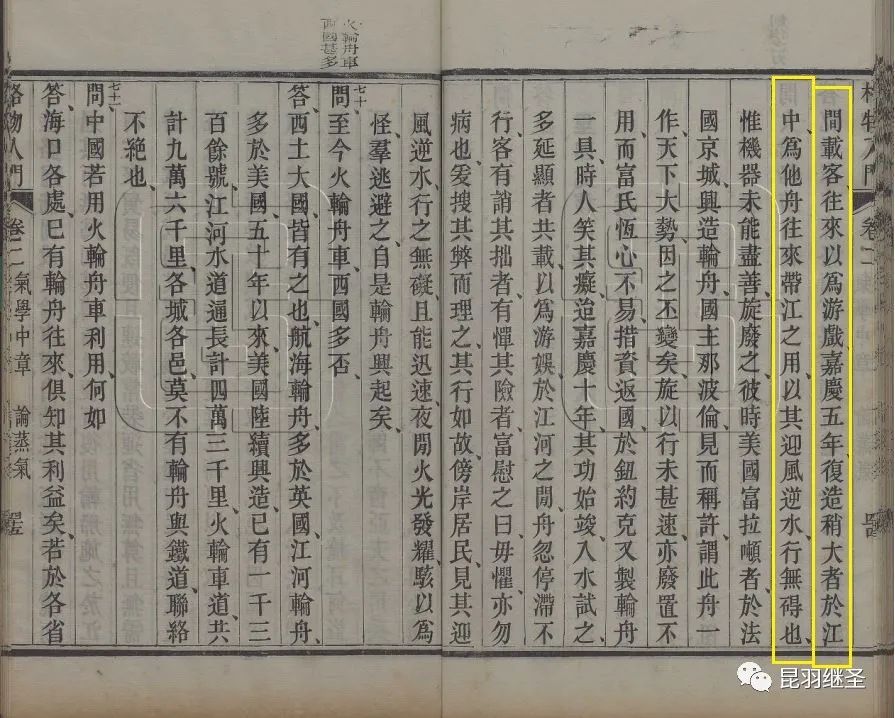 格物入門 卷二 四
間載客往來以爲游戲嘉慶五年復造稍大者於江
中爲他舟往來帶江之用以其迎風逆水行無碍也
惟機器未能盡善旋廢之彼時美國富拉噸者於法
國京城興造輪舟國主那波倫見而稱許謂此舟一
作天下大勢因之丕變矣旋以行未甚速亦廢置不
用而富氏恆心不易措資返國於鈕約克又製輪舟
一具時人笑其癡迨嘉慶十年其功始竣入水試之
多延顯者共載以爲游娛於江河之間舟忽停滯不
行客有誚其拙者有憚其險者富慰之曰毋懼亦勿
病也爰搜其弊而理之其行如故傍岸居民見其迎
風逆水行之無礙且能迅速夜間火光發耀駭以爲
怪羣逃避之自是輪舟興起矣
火輪舟車
西國甚多
七十
問至今火輪舟車西國多否
答西土大國皆有之也航海輪舟多於英國江河輪舟
多於美國五十年以來美國陸續興造已有一千三
百餘號江河水道通長計四萬三千里火輪車道共
計九萬六千里各城各邑莫不有輪舟與鐵道聯絡
不絕也
七十一
問中國若用火輪舟車利用何如
答海口各處已有輪舟往來俱知其利益矣若於各省
格物入門 卷二 氣學中章 論蒸氣
昆羽继圣